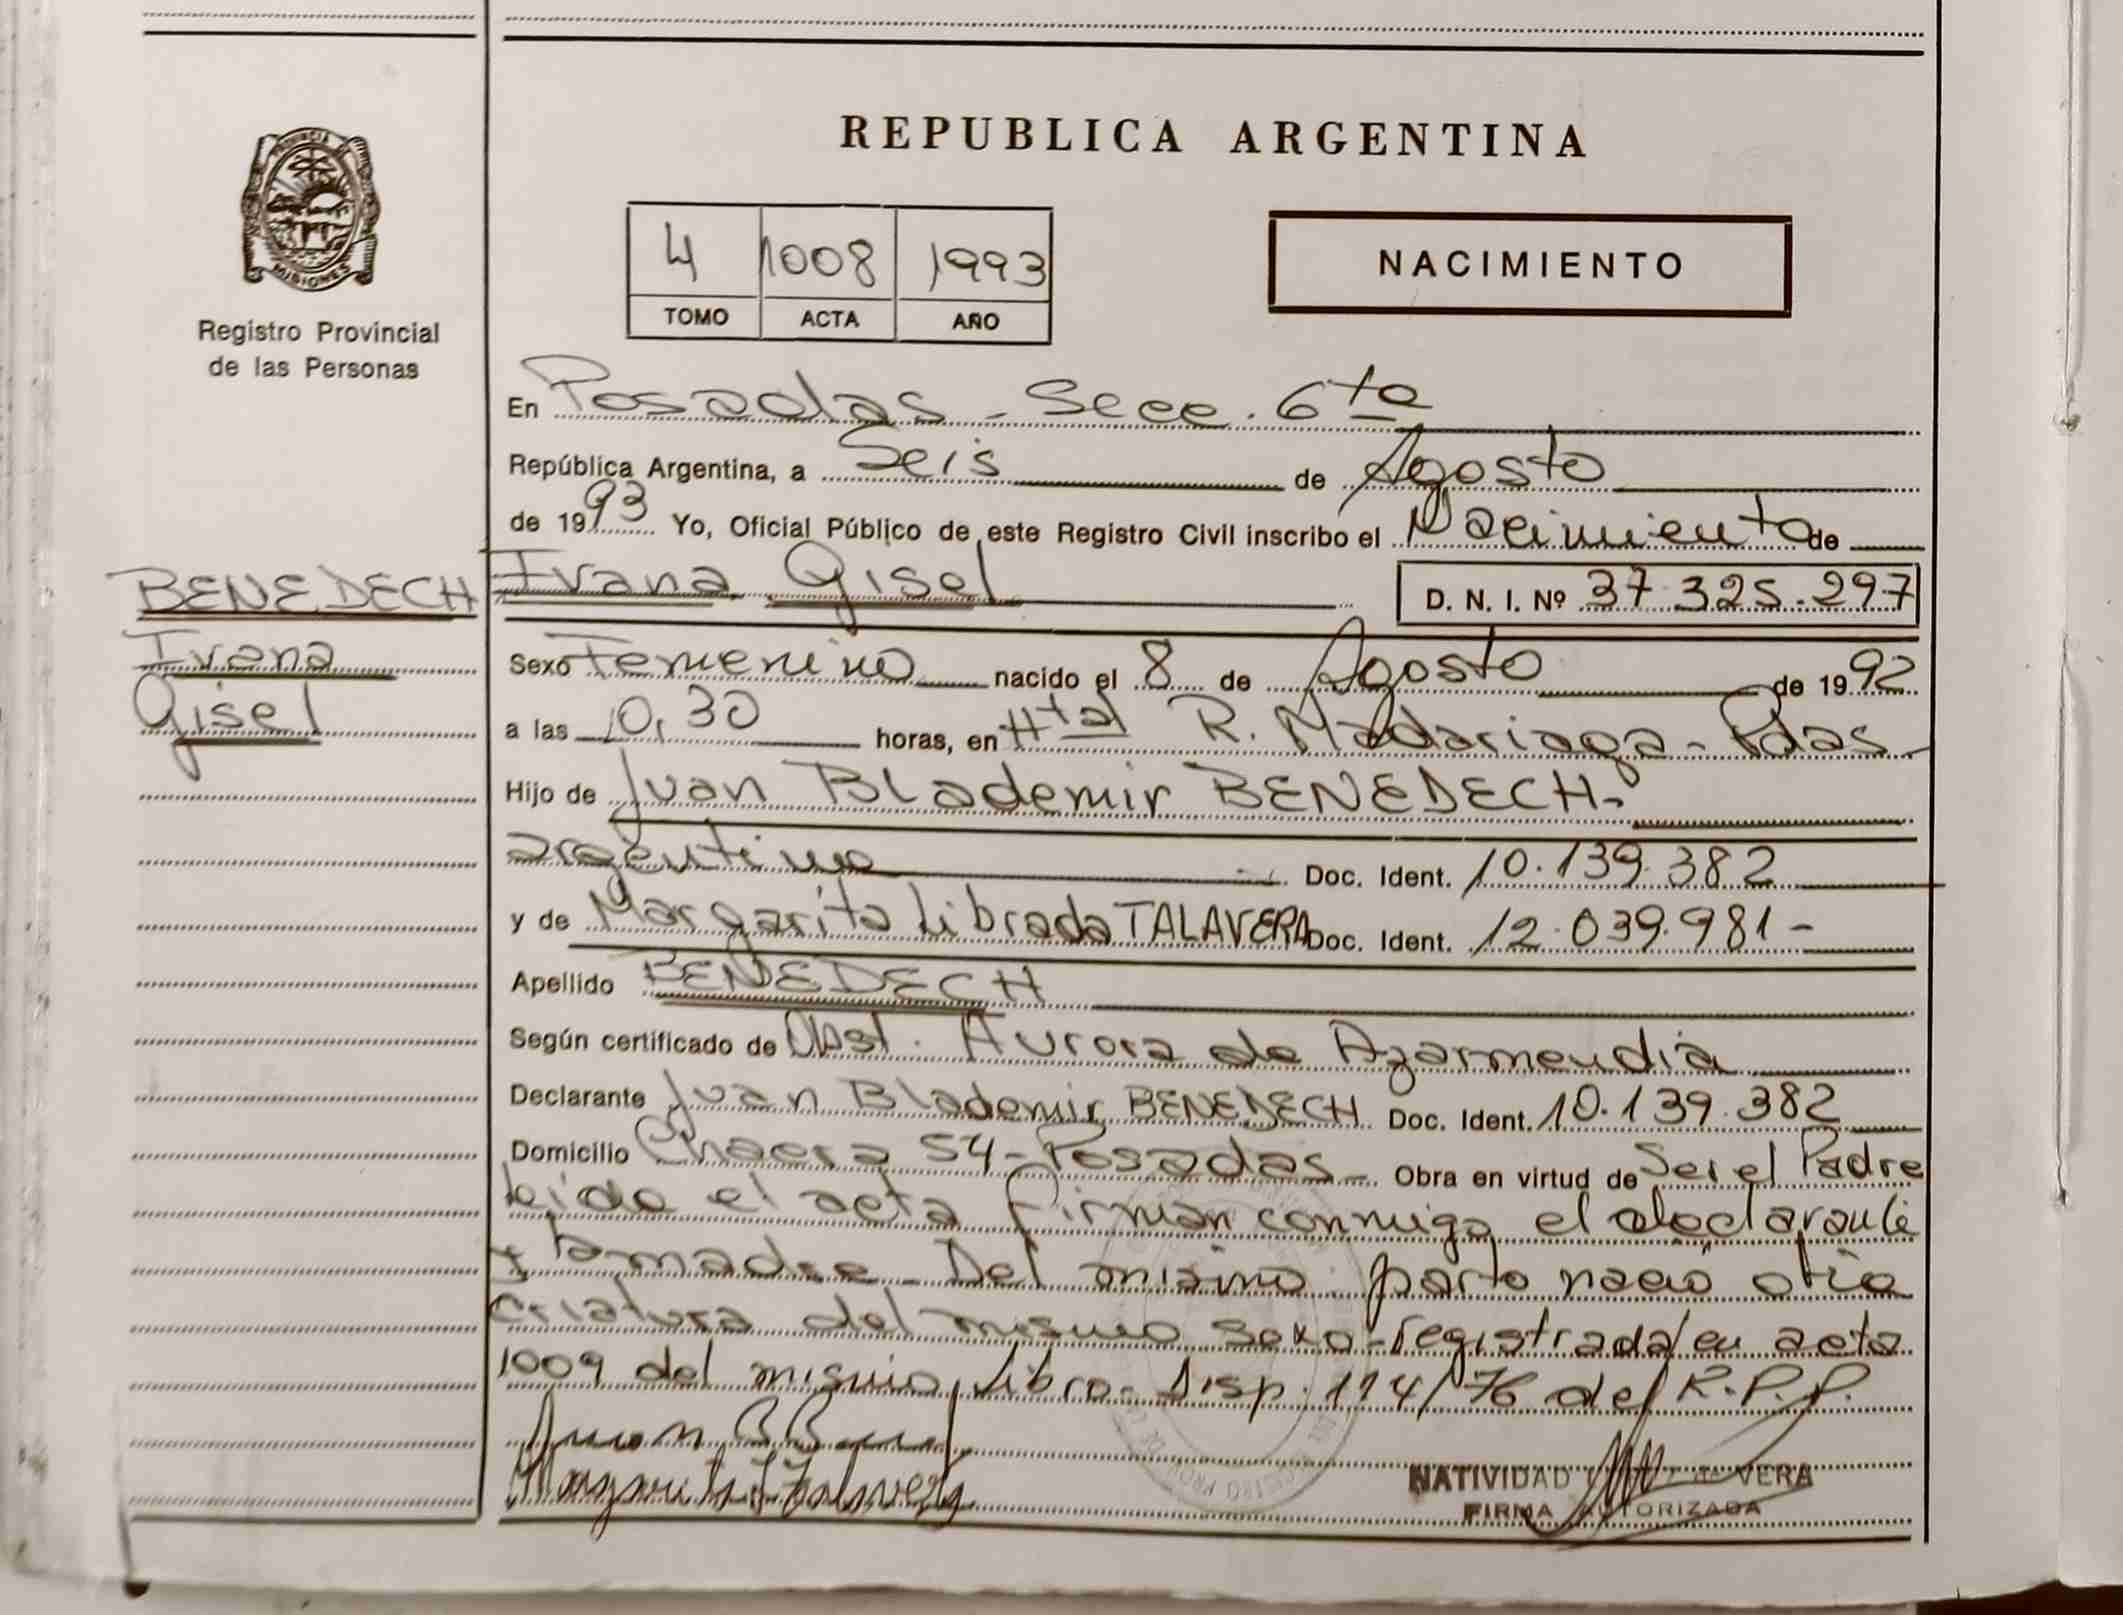 REPUBLICA ARGENTINA
PROVINCIA DE
MISIONES
Registro Provincial
de las Personas
4 1008 1993
TOMO ACTA AÑO
NACIMIENTO
En Posadas - Secc. 6ta
República Argentina, a Seis de Agosto
de 1993 Yo, Oficial Público de este Registro Civil inscribo el Nacimiento de
BENEDECH
Ivana
Gisel
Ivana Gisel D. N. I. Nº 37.325.297
Sexo Femenino nacido el 8 de Agosto de 1992
a las 10,30 horas, en Htal R. Madariaga - Pdas -
Hijo de Juan Blademir BENEDECH-
argentino Doc. Ident. 10.139.382
y de Margarita Librada TALAVERA Doc. Ident. 12.039.981-
Apellido BENEDECH
Según certificado de Obst. Aurora de Azarmendia
Declarante Juan Blademir BENEDECH Doc. Ident. 10.139.382
Domicilio Chacra 54 - Posadas - Obra en virtud de Ser el Padre
leida el acta firman conmigo el declarante
y la madre - Del mismo parto nacio otra
criatura del mismo sexo - registrada en acta
1009 del mismo Libro - Disp. 114/76 del R.P.P.
Margarita L Talavera
NATIVIDAD VERA
FIRMA AUTORIZADA